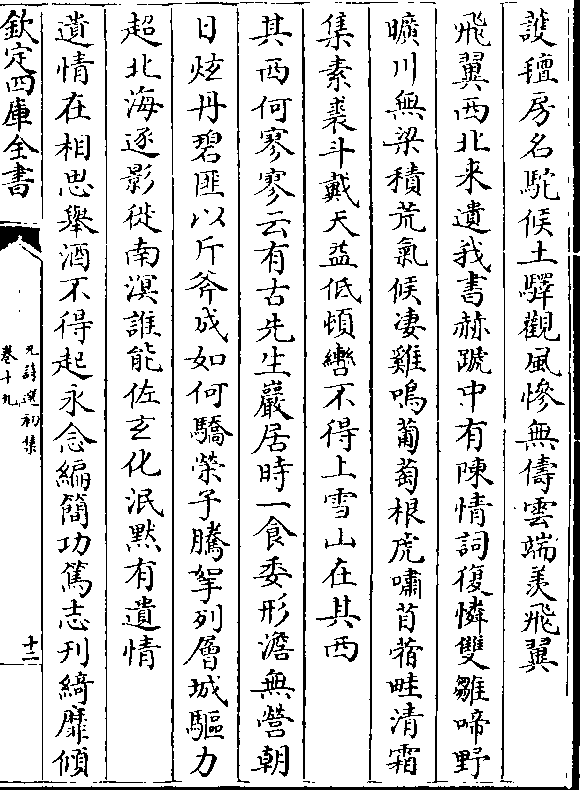 護氊房名駝候土驛觀風慘無儔雲端羡飛翼
飛翼西北来遺我書赫蹏中有陳情詞復憐雙雛啼野
曠川無梁積荒氣候凄雞鳴葡萄根虎嘯苜蓿畦清霜
集素裘斗戴天益低頓轡不得上雪山在其西
其西何寥寥云有古先生巖居時一食委形澹無營朝
日炫丹碧匪以斤斧成如何驕榮子騰挐列層城驅力
超北海逐影從南溟誰能佐玄化泯默有遺情
遺情在相思舉酒不得起永念編簡功篤志刋綺靡傾
欽定四庫全書
元詩選初集
卷十九
十二